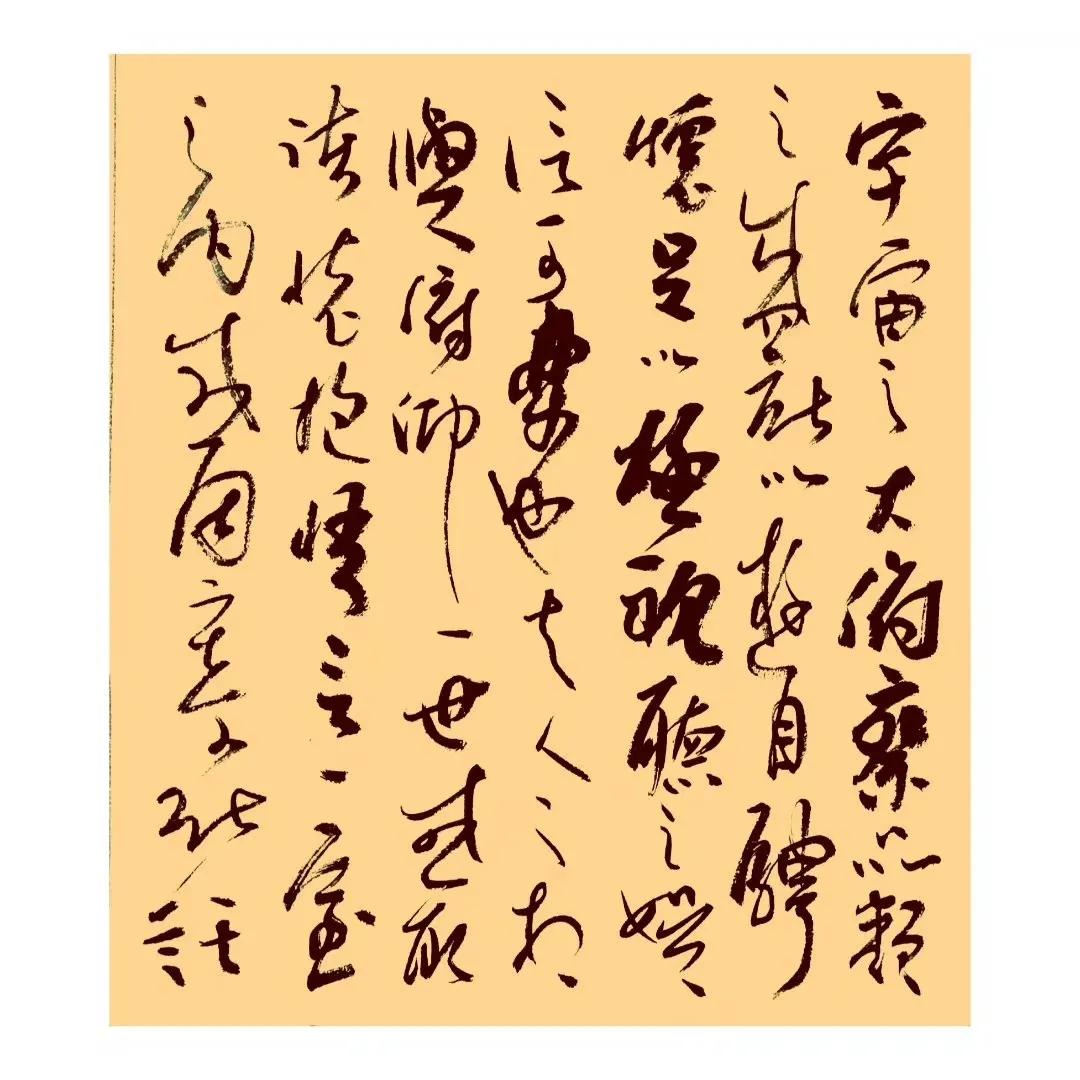 宇宙之大俯察品類
之盛所以遊目騁
懷足以極視聽之娛
信可樂也夫人之相
與俯仰一世或取
諸懷抱悟言一室
之內或因寄所託